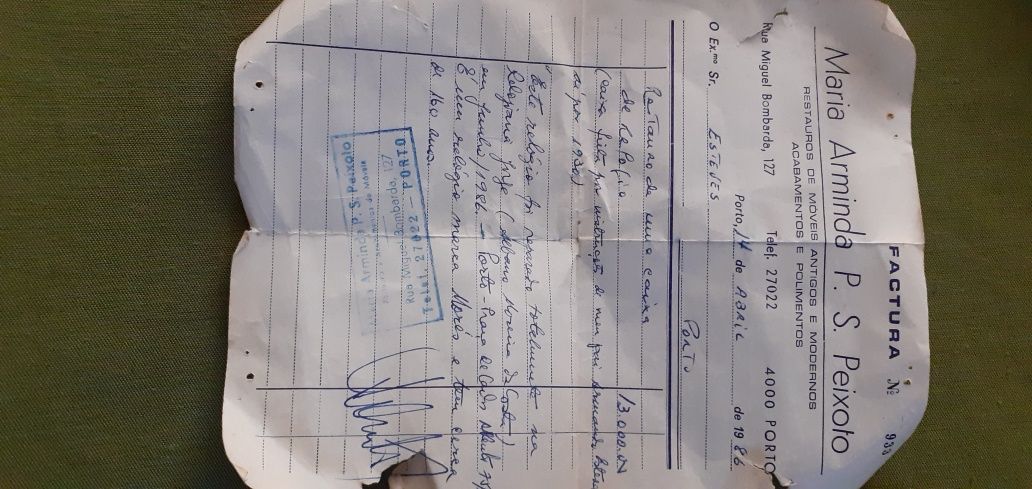 FACTURA Nº 933
Maria Arminda P. S. Peixoto
RESTAUROS DE MÓVEIS ANTIGOS E MODERNOS
ACABAMENTOS E POLIMENTOS
Rua Miguel Bombarda, 127 Telef. 27022 4000 PORTO
Porto, 14 de ABRIL de 1986
O Ex.mo Sr. ESTEVES
PORTO
Restauro de uma caixa
de relogio 13.000.00
(caixa feita por instrução do meu pai
1930)
Este relógio foi reparado totalmente na
Relojoaria (Albano Moreira da Costa)
em Junho/1986 — Porto -
É um relógio marca Morés e tem cerca
de 160 anos.
Maria Arminda P. S. Peixoto
Rua Miguel Bombarda, 127
Telef. 27022 — PORTO